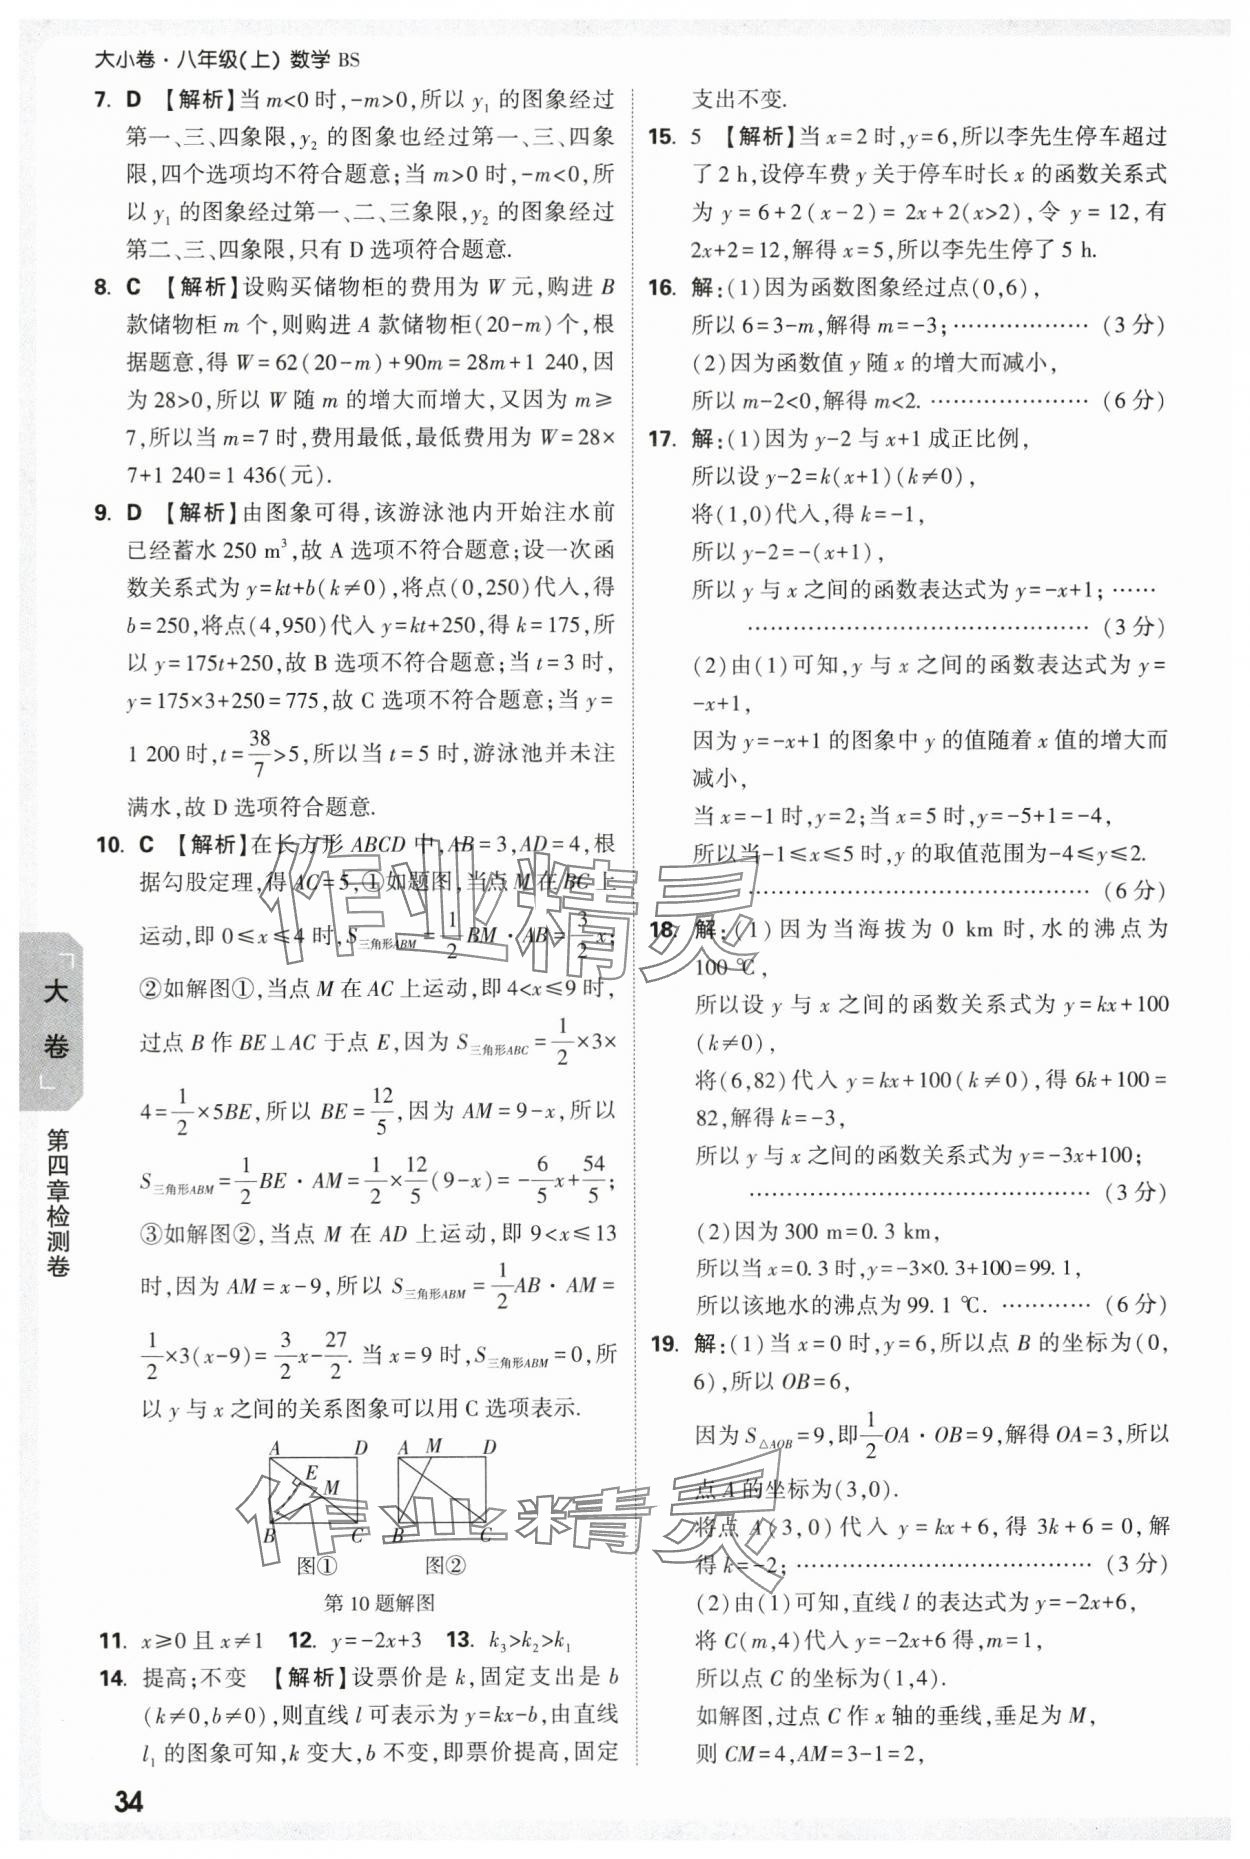 大小卷·八年级(上) 数学 BS
7. D 【解析】当 m<0 时,-m>0,所以 y₁ 的图象经过
第一、三、四象限,y₂ 的图象也经过第一、三、四象
限,四个选项均不符合题意;当 m>0 时,-m<0,所
以 y₁ 的图象经过第一、二、三象限,y₂ 的图象经过
第二、三、四象限,只有 D 选项符合题意.
8. C 【解析】设购买储物柜的费用为 W 元,购进 B
款储物柜 m 个,则购进 A 款储物柜(20-m)个,根
据题意,得 W=62(20-m)+90m=28m+1 240,因
为 28>0,所以 W 随 m 的增大而增大,又因为 m≥
7,所以当 m=7 时,费用最低,最低费用为 W=28×
7+1 240=1 436(元).
9. D 【解析】由图象可得,该游泳池内开始注水前
已经蓄水 250 m³,故 A 选项不符合题意;设一次函
数关系式为 y=kt+b(k≠0),将点(0,250)代入,得
b=250,将点(4,950)代入 y=kt+250,得 k=175,所
以 y=175t+250,故 B 选项不符合题意;当 t=3 时,
y=175×3+250=775,故 C 选项不符合题意;当 y=
1 200 时,t=38/7>5,所以当 t=5 时,游泳池并未注
满水,故 D 选项符合题意.
10. C 【解析】在长方形 ABCD 中,AB=3,AD=4,根
据勾股定理,得 AC=5,①如题图,当点 M 在 BC 上
运动,即 0≤x≤4 时,S三角形ABM=1/2BM·AB=3/2x;
②如解图①,当点 M 在 AC 上运动,即 4<x≤9 时,
过点 B 作 BE⊥AC 于点 E,因为 S三角形ABC=1/2×3×
4=1/2×5BE,所以 BE=12/5,因为 AM=9-x,所以
S三角形ABM=1/2BE·AM=1/2×12/5(9-x)=-6/5x+54/5;
③如解图②,当点 M 在 AD 上运动,即 9<x≤13
时,因为 AM=x-9,所以 S三角形ABM=1/2AB·AM=
1/2×3(x-9)=3/2x-27/2. 当 x=9 时,S三角形ABM=0,所
以 y 与 x 之间的关系图象可以用 C 选项表示.
A D A M D
E
M
B C B C
图① 图②
第 10 题解图
11. x≥0 且 x≠1 12. y=-2x+3 13. k₃>k₂>k₁
14. 提高;不变 【解析】设票价是 k,固定支出是 b
(k≠0,b≠0),则直线 l 可表示为 y=kx-b,由直线
l₁ 的图象可知,k 变大,b 不变,即票价提高,固定
34
大卷
第四章检测卷
支出不变.
15. 5 【解析】当 x=2 时,y=6,所以李先生停车超过
了 2 h,设停车费 y 关于停车时长 x 的函数关系式
为 y=6+2(x-2)=2x+2(x>2),令 y=12,有
2x+2=12,解得 x=5,所以李先生停了 5 h.
16. 解:(1)因为函数图象经过点(0,6),
所以 6=3-m,解得 m=-3;………………(3 分)
(2)因为函数值 y 随 x 的增大而减小,
所以 m-2<0,解得 m<2. …………………(6 分)
17. 解:(1)因为 y-2 与 x+1 成正比例,
所以设 y-2=k(x+1)(k≠0),
将(1,0)代入,得 k=-1,
所以 y-2=-(x+1),
所以 y 与 x 之间的函数表达式为 y=-x+1;……
………………………………………(3 分)
(2)由(1)可知,y 与 x 之间的函数表达式为 y=
-x+1,
因为 y=-x+1 的图象中 y 的值随着 x 值的增大而
减小,
当 x=-1 时,y=2;当 x=5 时,y=-5+1=-4,
所以当-1≤x≤5 时,y 的取值范围为-4≤y≤2.
………………………………………(6 分)
18. 解:(1)因为当海拔为 0 km 时,水的沸点为
100 ℃,
所以设 y 与 x 之间的函数关系式为 y=kx+100
(k≠0),
将(6,82)代入 y=kx+100(k≠0),得 6k+100=
82,解得 k=-3,
所以 y 与 x 之间的函数关系式为 y=-3x+100;
………………………………………(3 分)
(2)因为 300 m=0.3 km,
所以当 x=0.3 时,y=-3×0.3+100=99.1,
所以该地水的沸点为 99.1 ℃. …………(6 分)
19. 解:(1)当 x=0 时,y=6,所以点 B 的坐标为(0,
6),所以 OB=6,
因为 S△AOB=9,即1/2OA·OB=9,解得 OA=3,所以
点 A 的坐标为(3,0).
将点 A(3,0)代入 y=kx+6,得 3k+6=0,解
得 k=-2;…………………………………(3 分)
(2)由(1)可知,直线 l 的表达式为 y=-2x+6,
将 C(m,4)代入 y=-2x+6 得,m=1,
所以点 C 的坐标为(1,4).
如解图,过点 C 作 x 轴的垂线,垂足为 M,
则 CM=4,AM=3-1=2,
作业精灵
作业精灵